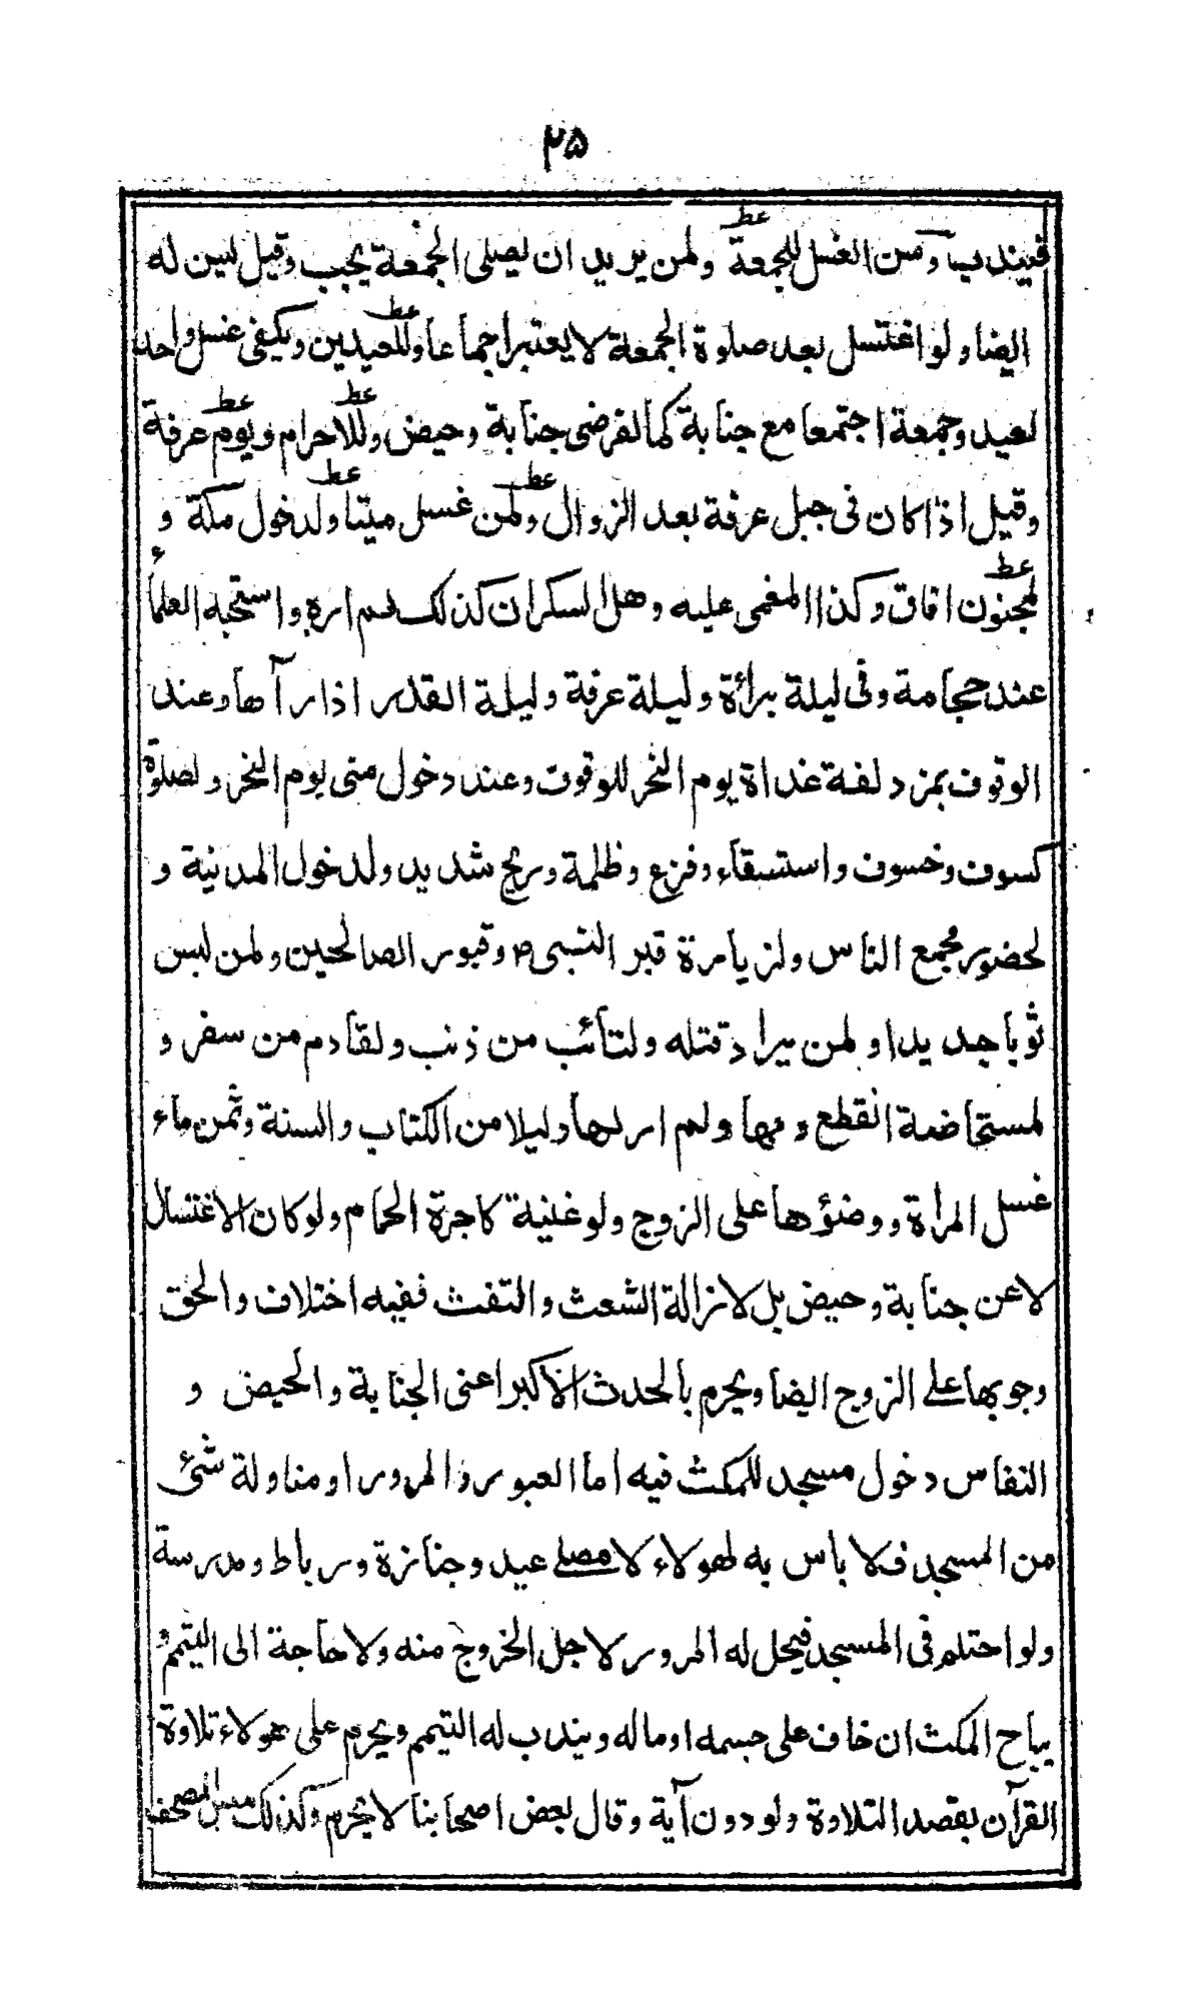 ٢٥
فيندب وسن الغسل للجمعة ولمن يريد ان يصلى الجمعة يجب وقيل ليس له
ايضا ولو اغتسل بعد صلوة الجمعة لا يعتبر اجماعا وللعيدين ويكفى غسل واحد
لعيد وجمعة اجتمعا مع جنابة كما لفرضى جنابة وحيض وللاحرام ويوم عرفة
وقيل اذا كان فى جبل عرفة بعد الزوال ولمن غسل ميتا ولدخول مكة و
لمجنون افاق وكذا المغمى عليه وهل السكران كذلك لم اره واستحبه العلماء
عند حجامة وفى ليلة براءة وليلة عرفة وليلة القدر اذا رآها وعند
الوقوف بمزدلفة غداة يوم النحر للوقوف وعند دخول منى يوم النحر ولصلوة
كسوف وخسوف واستسقاء وفزع وظلمة وريح شديد ولدخول المدينة و
لحضور مجمع الناس ولزيارة قبر النبى ص وقبور الصالحين ولمن لبس
ثوبا جديدا ولمن يراد قتله ولتائب من ذنب ولقادم من سفر و
لمستحاضة انقطع دمها ولم ار لها دليلا من الكتاب والسنة وثمن ماء
غسل المرأة ووضؤها على الزوج ولو غنية كاجرة الحمام ولو كان الاغتسال
لا عن جنابة وحيض بل لازالة الشعث والتفث ففيه اختلاف والحق
وجوبها على الزوج ايضا ويحرم بالحدث الاكبر اعنى الجنابة والحيض و
النفاس دخول مسجد للمكث فيه اما العبور والمرور او مناولة شئ
من المسجد فلا باس به لهولاء لا مصلے عيد وجنازة ورباط ومدرسة
ولو احتلم فى المسجد فيحل له المرور لاجل الخروج منه ولا حاجة الى التيمم و
يباح المكث ان خاف على جسمه او ماله ويندب له التيمم ويحرم على هولاء تلاوة
القرآن بقصد التلاوة ولو دون آية وقال بعض اصحابنا لا يحرم وكذلك مس المصحف